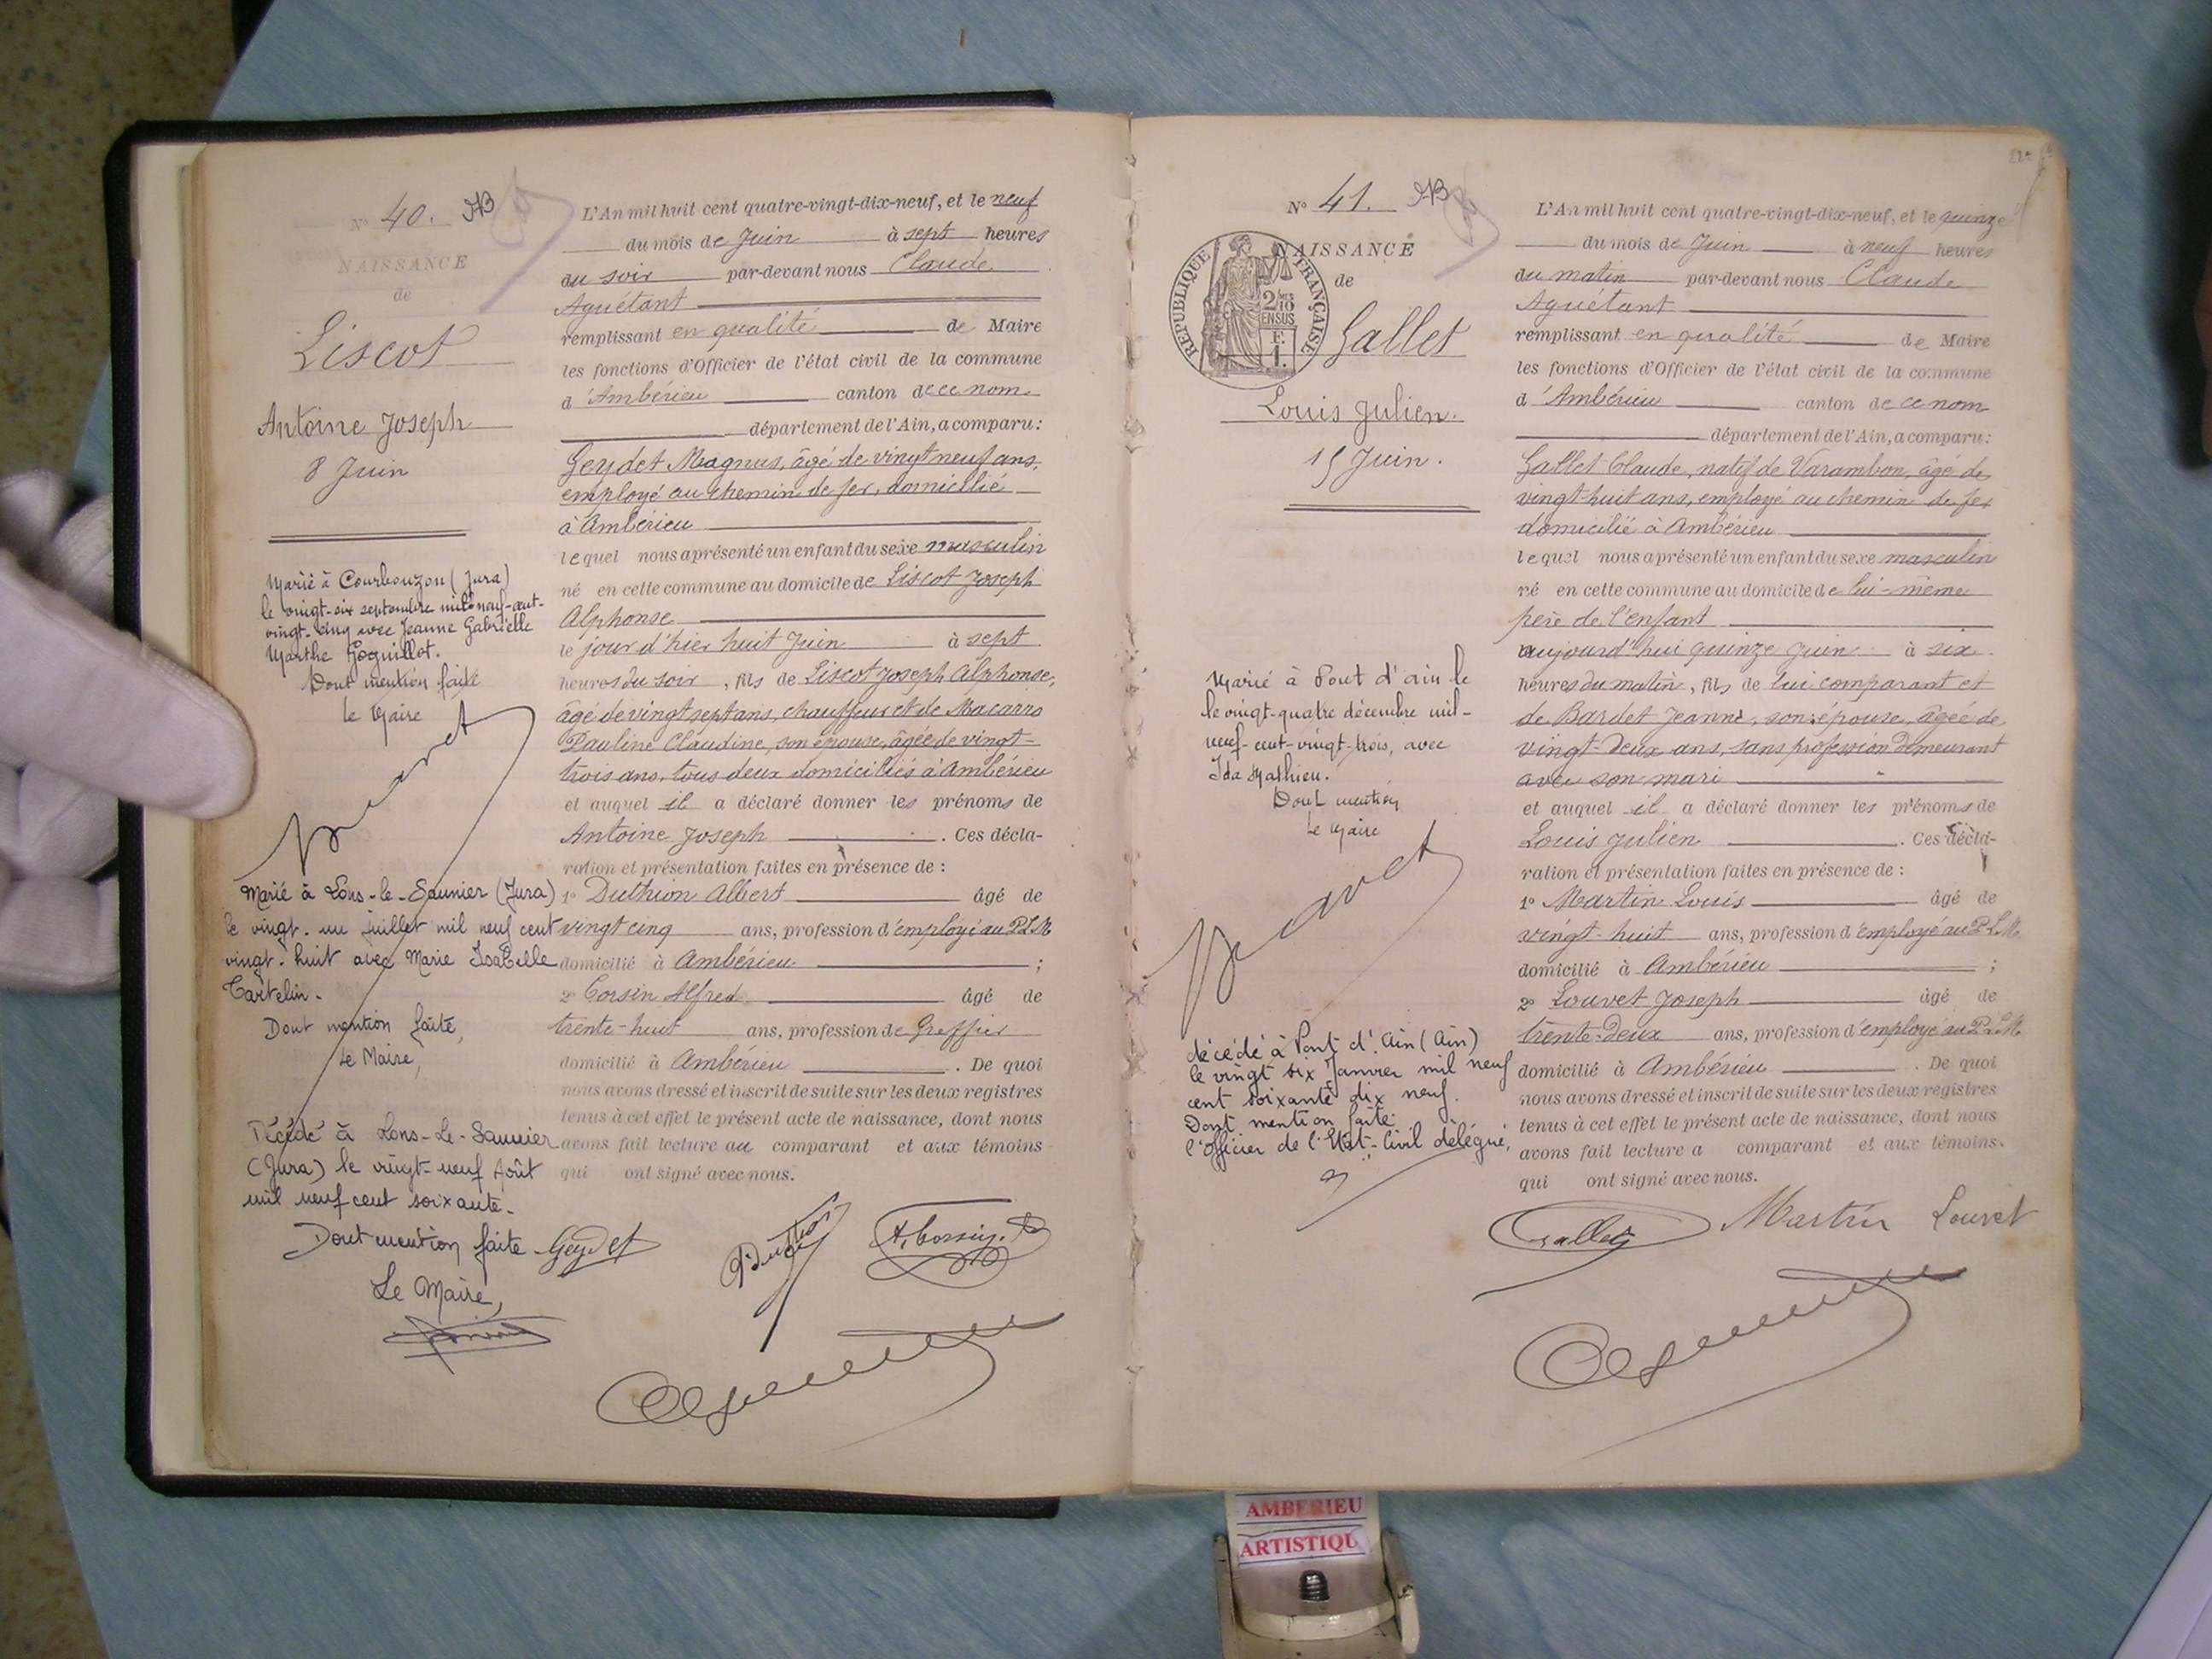 N° 40.
NAISSANCE
de
Liscot
Antoine Joseph
8 Juin
Marié à Courbouzon (Jura)
le vingt-six septembre mil neuf-cent-
vingt-cinq avec Jeanne Gabrielle
Marthe Goguillot.
Dont mention faite
Le Maire
Marié à Lons-le-Saunier (Jura)
le vingt-un juillet mil neuf cent
vingt-huit avec Marie Isabelle
Cartelin.
Dont mention faite,
Le Maire,
Décédé à Lons-Le-Saunier
(Jura) le vingt-neuf Août
mil neuf cent soixante.
Dont mention faite
Le Maire,
L'An mil huit cent quatre-vingt-dix-neuf, et le neuf
du mois de Juin à sept heures
du soir par-devant nous Claude
Aguétant
remplissant en qualité de Maire
les fonctions d'Officier de l'état civil de la commune
d'Ambérieu canton de ce nom
département de l'Ain, a comparu:
Geydet Magnus, âgé de vingt neuf ans,
employé au chemin de fer, domicilié
à Ambérieu
lequel nous a présenté un enfant du sexe masculin
né en cette commune au domicile de Liscot Joseph
Alphonse
le jour d'hier huit Juin à sept
heures du soir, fils de Liscot Joseph Alphonse,
âgé de vingt sept ans, chauffeur et de Macarro
Pauline Claudine, son épouse, âgée de vingt-
trois ans, tous deux domiciliés à Ambérieu
et auquel il a déclaré donner les prénoms de
Antoine Joseph . Ces décla-
ration et présentation faites en présence de :
1° Duthion Albert âgé de
vingt cinq ans, profession d'employé au PLM
domicilié à Ambérieu ;
2° Corsin Alfred âgé de
trente-huit ans, profession de Greffier
domicilié à Ambérieu . De quoi
nous avons dressé et inscrit de suite sur les deux registres
tenus à cet effet le présent acte de naissance, dont nous
avons fait lecture au comparant et aux témoins
qui ont signé avec nous.
Geydet
N° 41.
RÉPUBLIQUE FRANÇAISE
2/10 EN SUS
F. 1.
NAISSANCE
de
Gallet
Louis Julien.
15 Juin.
Marié à Pont d'ain le
le vingt-quatre décembre mil-
neuf-cent-vingt-trois, avec
Ida Mathieu.
Dont mention
Le Maire
décédé à Pont d'Ain (Ain)
le vingt six Janvier mil neuf
cent soixante dix neuf.
Dont mention faite.
l'Officier de l'Etat-Civil délégué,
L'An mil huit cent quatre-vingt-dix-neuf, et le quinze
du mois de Juin à neuf heures
du matin par-devant nous Claude
Aguétant
remplissant en qualité de Maire
les fonctions d'Officier de l'état civil de la commune
d'Ambérieu canton de ce nom
département de l'Ain, a comparu:
Gallet Claude, natif de Varambon, âgé de
vingt-huit ans, employé au chemin de fer
domicilié à Ambérieu
lequel nous a présenté un enfant du sexe masculin
né en cette commune au domicile de lui-même
père de l'enfant
aujourd'hui quinze Juin à six
heures du matin, fils de lui comparant et
de Bardet Jeanne, son épouse, âgée de
vingt-deux ans, sans profession demeurant
avec son mari
et auquel il a déclaré donner les prénoms de
Louis Julien . Ces décla-
ration et présentation faites en présence de :
1° Martin Louis âgé de
vingt-huit ans, profession d'employé au P.L.M.
domicilié à Ambérieu ;
2° Louvet Joseph âgé de
trente-deux ans, profession d'employé au P.L.M.
domicilié à Ambérieu . De quoi
nous avons dressé et inscrit de suite sur les deux registres
tenus à cet effet le présent acte de naissance, dont nous
avons fait lecture a comparant et aux témoins.
qui ont signé avec nous.
Gallet Martin Louvet
AMBERIEU
ARTISTIQU